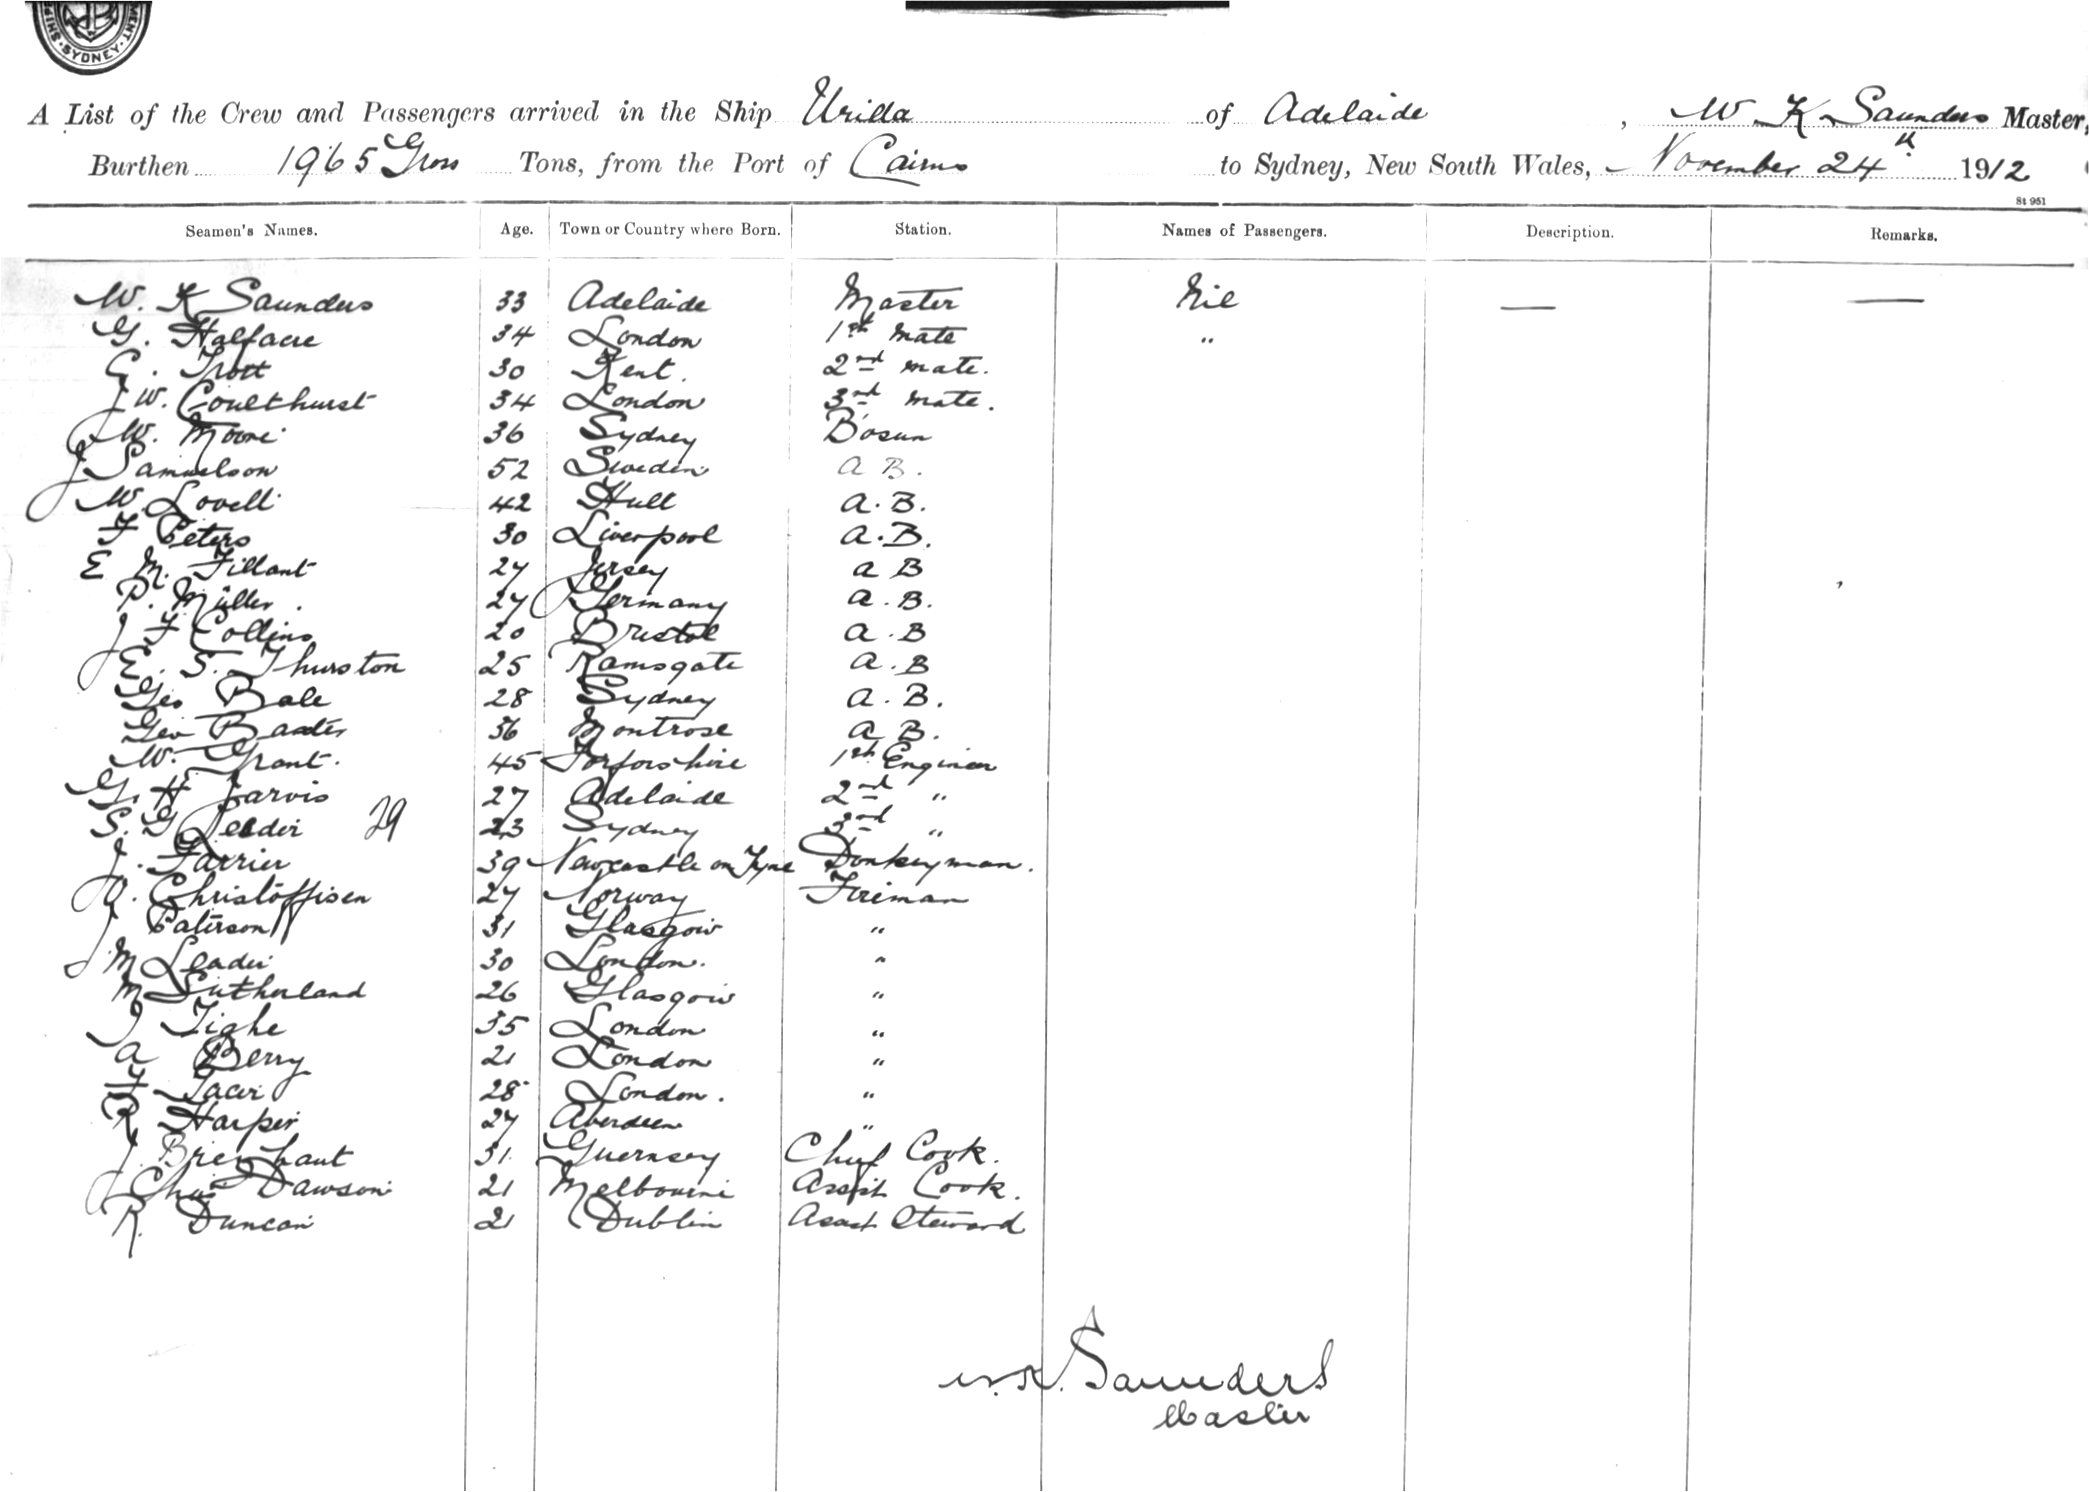 SHIP MENT. SYDNEY.
A List of the Crew and Passengers arrived in the Ship Urilla of Adelaide, W K Saunders Master,
Burthen 1965 Gross Tons, from the Port of Cairns to Sydney, New South Wales, November 24th 1912
St 951
Seamen's Names. Age. Town or Country where Born. Station. Names of Passengers. Description. Remarks.
W. K Saunders 33 Adelaide Master Nil — —
G. Halfacre 34 London 1st Mate "
E. Trott 30 Kent. 2nd mate.
J W. Coulthurst 34 London 3rd mate.
W. Moore 36 Sydney Bosun
J Samuelson 52 Sweden A B.
W. Lovell 42 Hull A. B.
F Peters 30 Liverpool A. B.
E M. Fillant 27 Jersey A B
P. Müller. 27 Germany A. B.
J F Collins 20 Bristol A. B
E. S. Thurston 25 Ramsgate A. B
Geo Bale 28 Sydney A. B.
Geo Baxter 36 Montrose A B.
W. Grant. 45 Forfarshire 1st Engineer
G. H Jarvis 27 Adelaide 2nd "
S. G Leader 29 23 Sydney 3rd "
J. Farrier 39 Newcastle on Tyne Donkeyman.
O. Christoffisen 27 Norway Fireman
J Paterson 31 Glasgow "
J M Leader 30 London. "
M Sutherland 26 Glasgow "
J Tighe 35 London "
A Berry 21 London "
F Tacer 28 London. "
R Harper 27 Aberdeen "
J. Brephaut 31. Guernsey Chief Cook.
Chas Dawson 21 Melbourne Assist Cook.
R. Duncan 21 Dublin Assist Steward
W. K. Saunders
Master